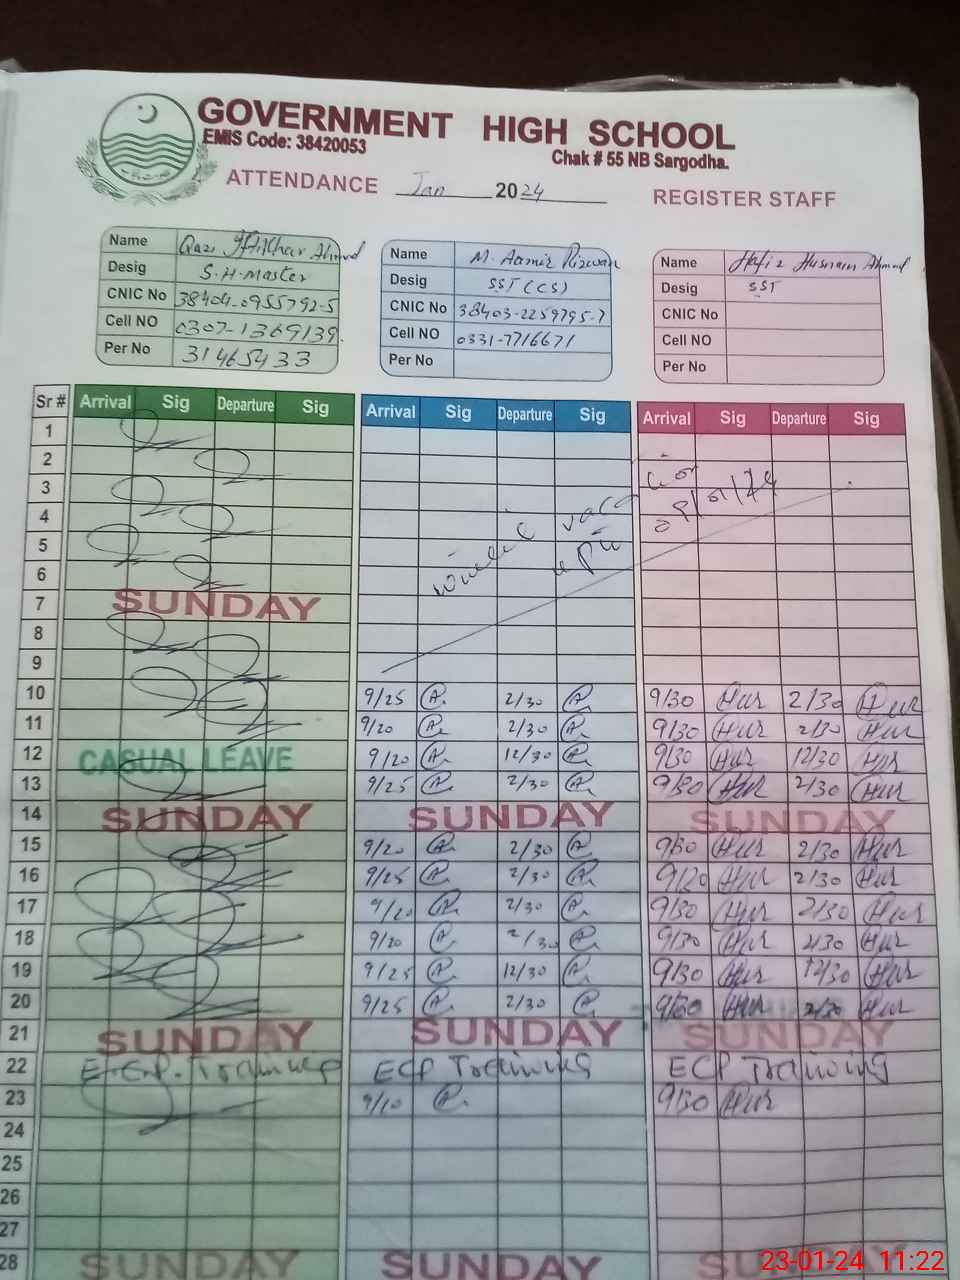 GOVERNMENT HIGH SCHOOL
EMIS Code: 38420053
Chak # 55 NB Sargodha.
ATTENDANCE Jan 2024
REGISTER STAFF
Name Qazi Iftikhar Ahmed
Desig S.H-Master
CNIC No 38404-0955792-5
Cell NO 0307-1369139
Per No 31465433
Name M. Aamir Rizwan
Desig SST (CS)
CNIC No 38403-2259795-7
Cell NO 0331-7716671
Per No
Name Hafiz Husnain Ahmed
Desig SST
CNIC No
Cell NO
Per No
Sr # Arrival Sig Departure Sig Arrival Sig Departure Sig Arrival Sig Departure Sig
1
2
3
4
5
6
7 SUNDAY
8
9
10 9/25 2/30 9/30 Hur 2/30 Hur
11 9/20 2/30 9/30 Hur 2/30 Hur
12 CASUAL LEAVE 9/20 12/30 9/30 Hur 12/30 Hur
13 9/25 2/30 9/30 Hur 2/30 Hur
14 SUNDAY SUNDAY SUNDAY
15 9/20 2/30 9/30 Hur 2/30 Hur
16 9/25 2/30 9/20 Hur 2/30 Hur
17 9/20 2/30 9/30 Hur 2/30 Hur
18 9/20 2/30 9/30 Hur 2/30 Hur
19 9/25 12/30 9/30 Hur 12/30 Hur
20 9/25 2/30 9/30 Hur 2/30 Hur
21 SUNDAY SUNDAY SUNDAY
22 E.C.P. Training ECP Training ECP Training
23 9/10 9/30 Hur
24
25
26
27
28 SUNDAY SUNDAY SUNDAY
23-01-24 11:22